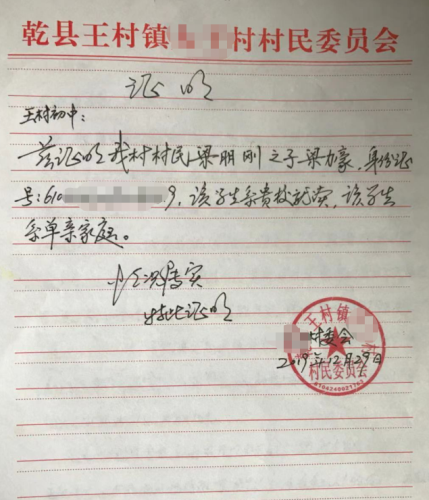 乾县王村镇 村村民委员会
证明
王村初中：
兹证明我村村民梁明刚之子梁力豪，身份证
号：610 9，该学生系贵校就读，该学生
系单亲家庭。
情况属实
特此证明
王村镇
村委会
2019年12月29日
村民委员会